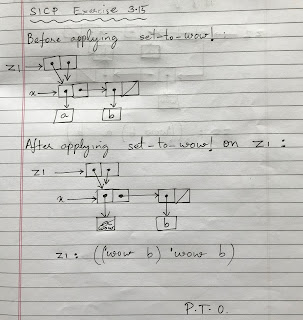 SICP Exercise 3.15
Before applying set-to-wow! :
z1
x
a b
After applying set-to-wow! on z1 :
z1
x
'wow b
z1 : (('wow b) 'wow b)
P.T.O.